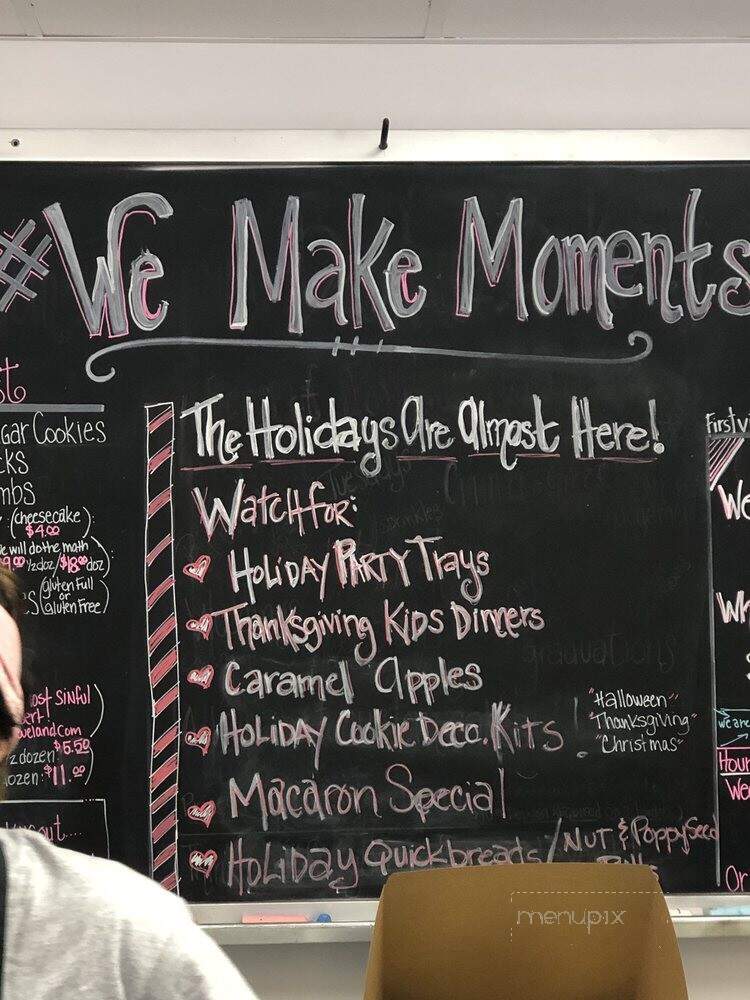 #We Make Moments
The Holidays Are Almost Here!
Watch for:
Holiday Party Trays
Thanksgiving Kids Dinners
Caramel Apples
Holiday Cookie Deco. Kits
"Halloween"
"Thanksgiving"
"Christmas"
Macaron Special
Holiday Quickbreads/Nut & PoppySeed
gar Cookies
(cheesecake)
$4.00
we will do the math
9.00 ½doz/$18.00 doz
(Gluten Full
or
Gluten Free)
ost sinful
eland.com
z dozen: $5.50
ozen: $11.00
First vi
We
Wh
we are
Hour
We
Or
menupix